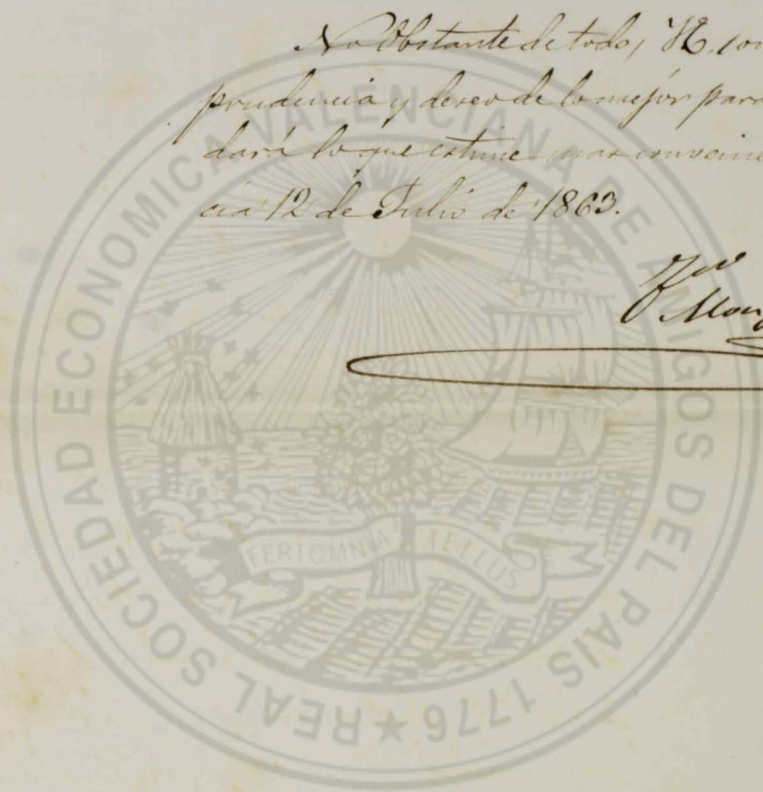 No Obstante de todo,
prudencia y deseo de lo mejor para
dará lo que estime mas convenie
cia 12 de Julio de 1863.
REAL SOCIEDAD ECONOMICA VALENCIANA DE AMIGOS DEL PAIS 1776 ★
FERT OMNIA TELLUS